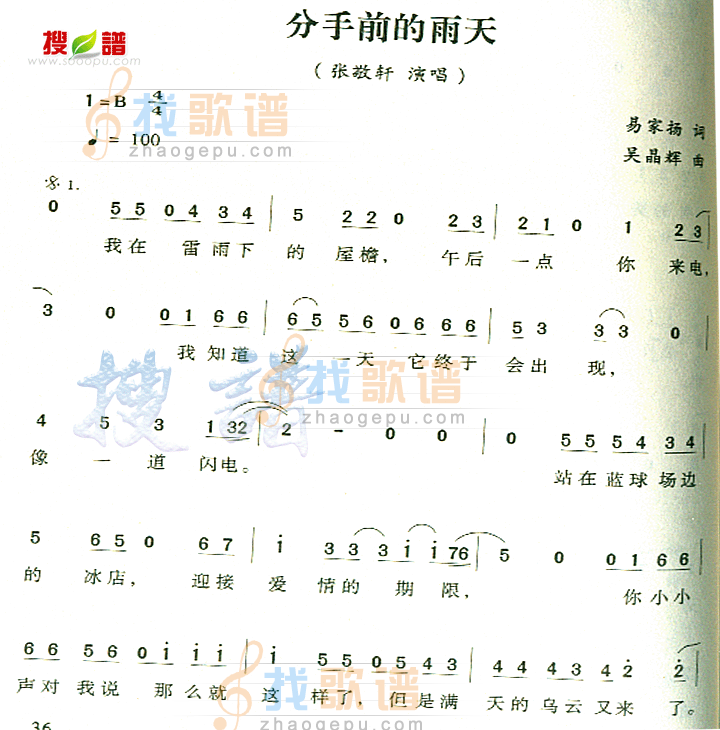 分手前的雨天
搜 谱
www.sooopu.com
(张敬轩 演唱)
1=B 4/4
♩= 100
找歌谱
zhaogepu.com
易家扬 词
吴晶辉 曲
1.
0 55 04 34 | 5 22 0 23 | 21 0 1 23
我在 雷雨下 的 屋檐, 午后 一点 你 来电,
3 0 01 66 | 65 56 06 66 | 53 33 0
我知道 这 一天 它终于 会出 现,
搜 譜
找歌谱
zhaogepu.com
4 5 3 132 | 2 - 0 0 | 0 55 54 34
像 一 道 闪电。 站在蓝球场边
5 65 0 67 | i 33 3i i76 | 5 0 01 66
的 冰店, 迎接 爱 情的 期 限, 你小小
66 56 0i ii | i 55 05 43 | 44 43 42 2
声对 我说 那么就 这 样了, 但是满 天的乌云又来 了。
找歌谱
zhaogepu.com
36